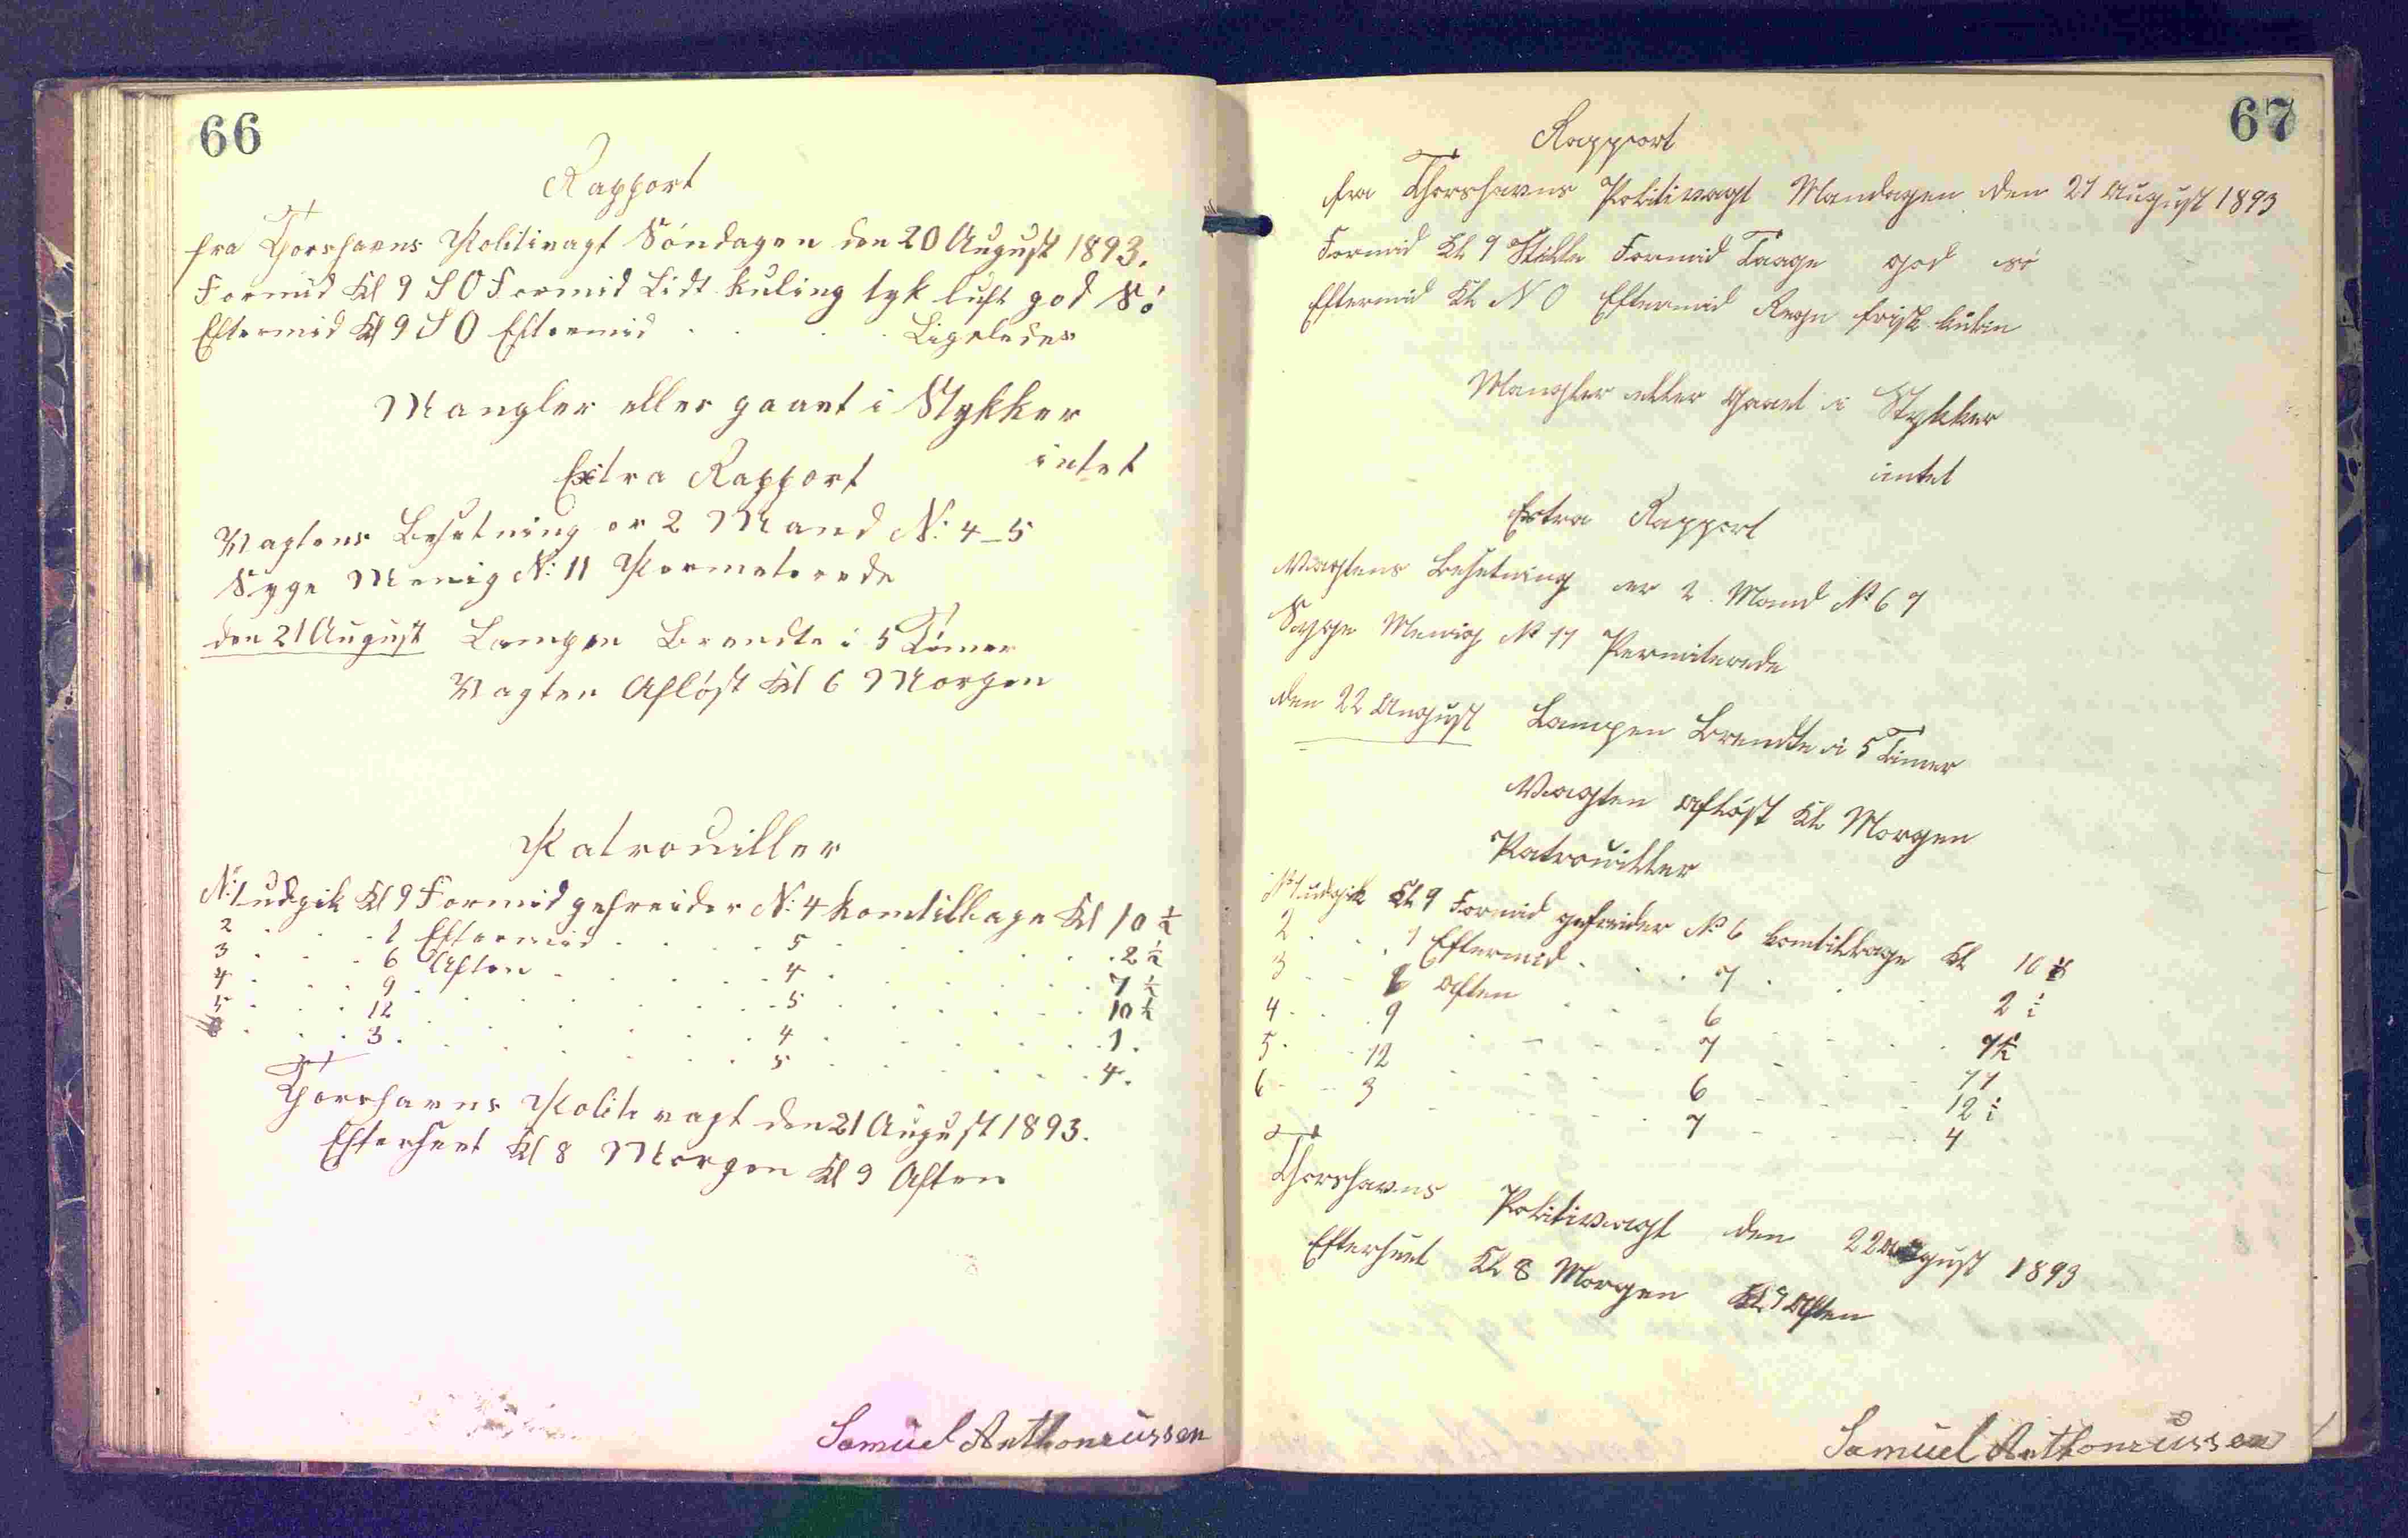 66
Rapport
fra Thorshavns Politivagt Söndagen den 20 August 1893.
Formid Kl 9 S O Formid Lidt kuling tyk luft god Sö
Eftermid Kl 9 S O Eftermid . . . . Ligeledes
Mangler eller gaaet i Stykker
intet
Extra Rapport
Vagtens Besetning er 2 Mand N: 4_5
Syge Menig N: 11 Permeterede
den 21 August Lampen Brendte i 5 Timer
Vagten Aflöst Kl 6 Morgen
Patrouiller
N: 1 udgik Kl 9 Formid gefreider N: 4 kom tilbage Kl 10 ½
2 . . . 1 Eftermid . . . . 5 . . . . . . 2 ½
3 . . . 6 Aften . . . . 4 . . . . . . 7 ½
4 . . . 9 . . . . . . 5 . . . . . . 10 ½
5 . . . 12 . . . . . . 4 . . . . . . 1 .
6 . . . 3 . . . . . . 5 . . . . . . 4 .
Thorshavns Politivagt den 21 August 1893.
Efterseet Kl 8 Morgen Kl 9 Aften
Samuel Anthoniussen
67
Rapport
fra Thorshavns Politivagt Mandagen den 21 August 1893
Formid Kl 9 Stille Formid Taage god sö
Eftermid Kl N O Eftermid Regn frisk kulin
Mangler eller Gaaet i Stykker
intet
Extra Rapport
Vagtens Besetning er 2 Mand No 6 7
Syge Menig No 11 Permiterede
den 22 August Lampen Brendte i 5 Timer
Vagten aflöst Kl Morgen
Patrouiller
No 1 udgik Kl 9 Formid gefreider No 6 kom tilbage Kl 10 ½
2 . . . 1 Eftermid . . . 7 . . . 2 ½
3 - - 6 Aften . . - 6 . . . 7 ½
4 - . . 9 . - - - . 7 - . . - 11
5 . - . 12 - - - . 6 - . . - 12 ½
6 - - 3 - - - . . 7 - - - . 4
Thorshavns Politivagt den 22 August 1893
Efterseet Kl 8 Morgen Kl 9 Aften
Samuel Anthoniussen